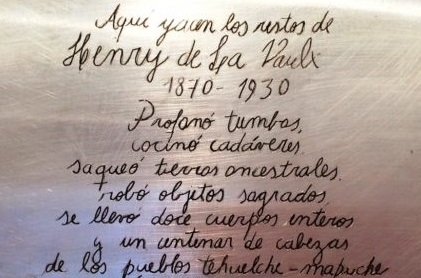 Aquí yacen los restos de
Henry de La Vaulx
1870-1930
Profanó tumbas,
cocinó cadáveres,
saqueó tierras ancestrales,
robó objetos sagrados,
se llevó doce cuerpos enteros
y un centenar de cabezas
de los pueblos tehuelche-mapuche